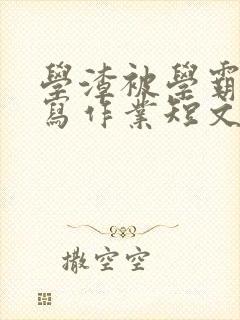 學渣被學霸
寫作業短文
撒空空